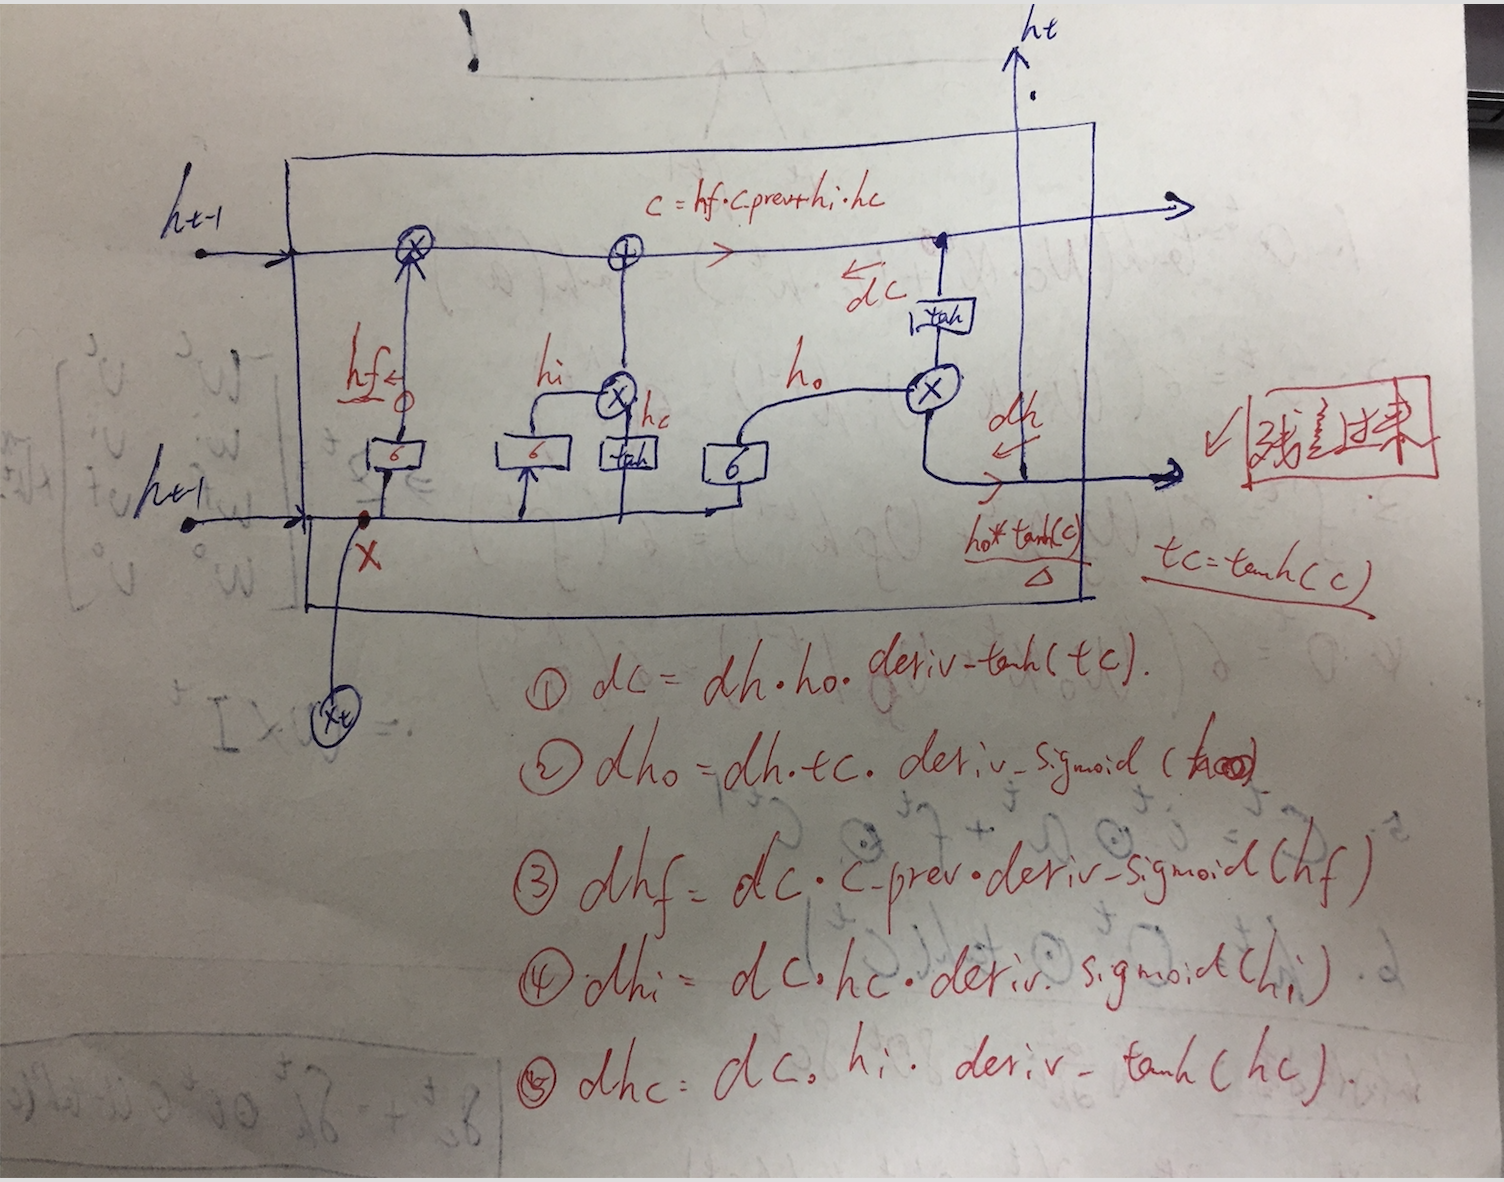 !
ht
ht-1
c = hf·c_prev+hi·hc
dc
tah
hf
hi
ho
hc
dh
残差过来
6
6
tah
6
ht-1
X
ho* tanh(c)
tc=tanh(c)
Xt
① dc = dh·ho·deriv-tanh(tc).
② dho = dh·tc. deriv_sigmoid (ho)
③ dhf = dc·c_prev·deriv-sigmoid(hf)
④ dhi = dc·hc·deriv. sigmoid(hi)
⑤ dhc = dc. hi. deriv- tanh(hc).